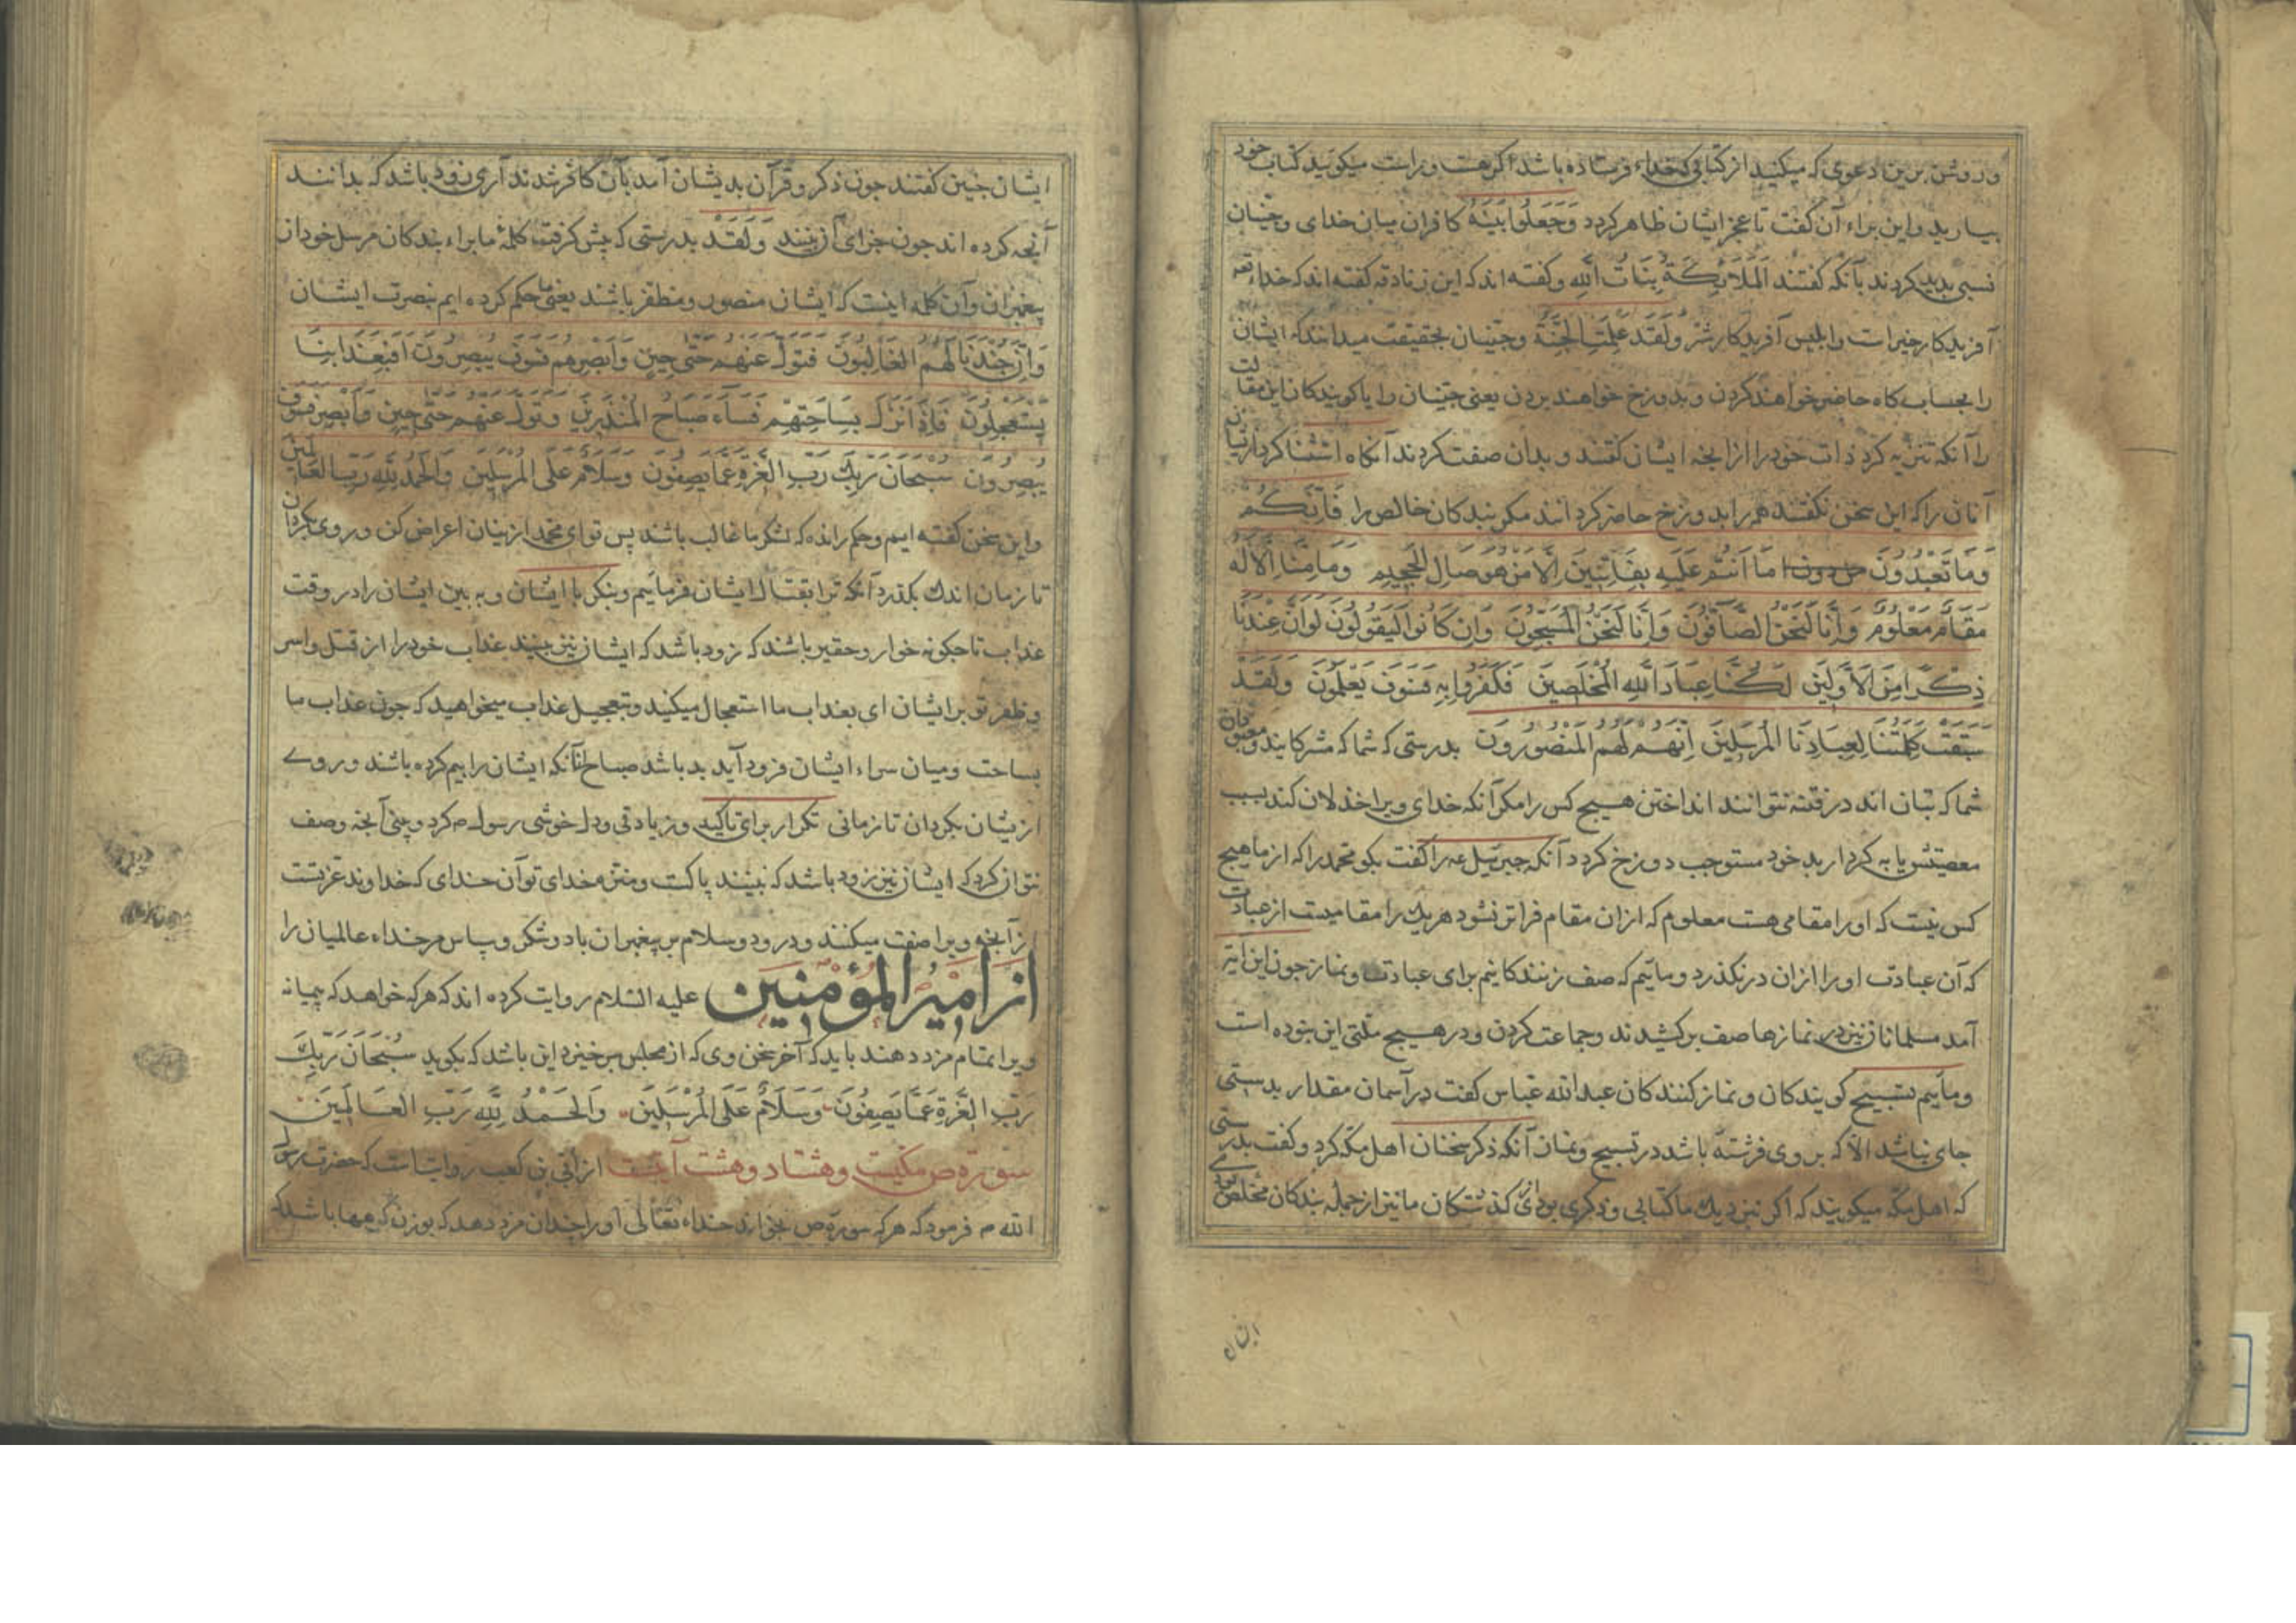 و روشن برین دعوی که میکنید از کتابی که خداء فرستاده باشد اکر هست و راست میکویید کتاب خود
بیارید و این براء آن کفت تا عجز ایشان ظاهر کردد وَجَعَلُوا بَيْنَهُ کافران میان خدای و جنیان
نسبی بدید کردند بآنکه کفتند المَلَائِكَةُ بَنَاتُ اللهِ و کفته اند که این زنادقه کفته اند که خداء تعه
آفریدکار خیراست و ابلیس آفریدکار شر وَلَقَد عَلِمَتِ الجِنَّةُ و جنیان بحقیقت میدانند که ایشان
را بحساب کاه حاضر خواهند کردن و بدوزخ خواهند بردن یعنی جنیان را یا کویندکان این مقالت
را آنکه تنزیه کرد ذات خود را از انجه ایشان کفتند و بدان صفت کردند آنکاه استثنا کرد ازیشان
آنان را که این سخن نکفتند همه را بدوزخ حاضر کردانند مکر بندکان خالص را فَاِنَّكُمْ
وَمَا تَعْبُدُونَ مَا اَنتُم عَلَيهِ بِفَاتِنِينَ اِلَّا مَنْ هُوَ صَالِ الجَحِيمِ وَمَا مِنَّا اِلَّا لَهُ
مَقَامٌ مَعْلُومٌ وَاِنَّا لَنَحْنُ الصَّافُّونَ وَاِنَّا لَنَحْنُ المُسَبِّحُونَ وَاِن كَانُوا لَيَقُولُونَ لَوْ اَنَّ عِنْدَنَا
ذِكْرًا مِنَ الاَوَّلِينَ لَكُنَّا عِبَادَ اللهِ المُخلَصِينَ فَكَفَرُوا بِهِ فَسَوفَ يَعْلَمُونَ وَلَقَدْ
سَبَقَتْ كَلِمَتُنَا لِعِبَادِنَا المُرْسَلِينَ اِنَّهُمْ لَهُمُ المَنْصُورُونَ بدرستی که شما که مشرکانید و معبودان
شما که بتان اند در فتنه نتوانند انداختن هیچ کس را مکر آنکه خدای ویرا خذلان کند بسبب
معصیتش یا به کردار بد خود مستوجب دوزخ کردد آنکه جبرئیل عه را کفت بکو محمد را که از ما هیچ
کس نیست که او را مقامی هست معلوم که ازان مقام فراتر نشود هر یک را مقامیست از عبادت
که آن عبادت او را ازان درنکذرد و ماییم که صف زنندکانیم برای عبادت و نماز جون این ایه
آمد مسلمانان نیز در نمازها صف برکشیدند و جماعت کردن و در هیچ ملتی این نبوده است
و ماییم تسبیح کویندکان و نماز کنندکان عبدالله عباس کفت در آسمان مقدار بدستی
جای نباشد الّا که بر وی فرشته باشد در تسبیح و نماز آنکه ذکر سخنان اهل مکه کرد و کفت بدرستی
که اهل مکه میکویند که اکر نزدیک ما کتابی و ذکری بودی از کذشتکان ما نیز از جمله بندکان مخلص
ایشان
ایشان جنین کفتند جون ذکر و قرآن بدیشان آمد بآن کافر شدند آری زود باشد که بدانند
آنجه کرده اند جون جزای آن بینند وَلَقَدْ بدرستی که پیش کرفت کلمۀ ما براء بندکان مرسل خود از
پیغمبران و آن کلمه اینست که ایشان منصور و مظفر باشند یعنی ما حکم کرده ایم بنصرت ایشان
وَاِنَّ جُنْدَنَا لَهُمُ الغَالِبُونَ فَتَوَلَّ عَنهُم حَتّٰی حِینٍ وَاَبْصِرهُم فَسَوفَ یُبْصِرُونَ اَفَبِعَذَابِنَا
یَسْتَعْجِلُونَ فَاِذَا نَزَلَ بِسَاحَتِهِم فَسَآءَ صَبَاحُ المُنْذَرِینَ وَتَوَلَّ عَنهُم حَتّٰی حِینٍ وَاَبْصِر فَسَوفَ
یُبْصِرُونَ سُبْحَانَ رَبِّكَ رَبِّ العِزَّةِ عَمَّا یَصِفُونَ وَسَلَامٌ عَلَی المُرْسَلِینَ وَالحَمْدُ لِلّٰهِ رَبِّ العَالَمِینَ
و این سخن کفته ایم و حکم رانده که لشکر ما غالب باشند پس تو ای محمد ازینان اعراض کن و روی بکردان
تا زمان اندک بکذرد آنکه ترا بقتال ایشان فرماییم و بنکر با ایشان و به بین ایشان را در وقت
عذاب تا جکونه خوار و حقیر باشند که زود باشد که ایشان نیز بینند عذاب خود را از قتل و اسر
و ظفر تو بر ایشان ای بعذاب ما استعجال میکنید و بتعجیل عذاب میخواهید که جون عذاب ما
بساحت و میان سراء ایشان فرود آید بد باشد صباح آنانکه ایشان را بیم کرده باشند و روی
ازیشان بکردان تا زمانی تکرار برای تاکید و زیادتی و دل خوشی رسول ص کرد و بینی آنجه وصف
نتوان کرد که ایشان نیز زود باشد که ببینند پاکست و منزه خدای تو آن خدای که خداوند عزتست
از آنجه ویرا صفت میکنند و درود و سلام بر پیغمبران باد و شکر و سپاس مر خداء عالمیان را
از امیر المؤمنین علیه السلام روایت کرده اند که هر که خواهد که بپیمانه
ویرا تمام مزد دهند باید که آخر سخن وی که از مجلس برخیزد این باشد که بکوید سُبْحَانَ رَبِّكَ
رَبِّ العِزَّةِ عَمَّا یَصِفُونَ وَسَلَامٌ عَلَی المُرْسَلِینَ وَالحَمْدُ لِلّٰهِ رَبِّ العَالَمِینَ
سورة ص مکیست و هشتاد و هشت آیتست از ابی بن کعب روایتست که حضرت رسول
الله ص فرمود که هر که سورة ص بخواند خداء تعالی او را چندان مزد دهد که بوزن کوهها باشد که